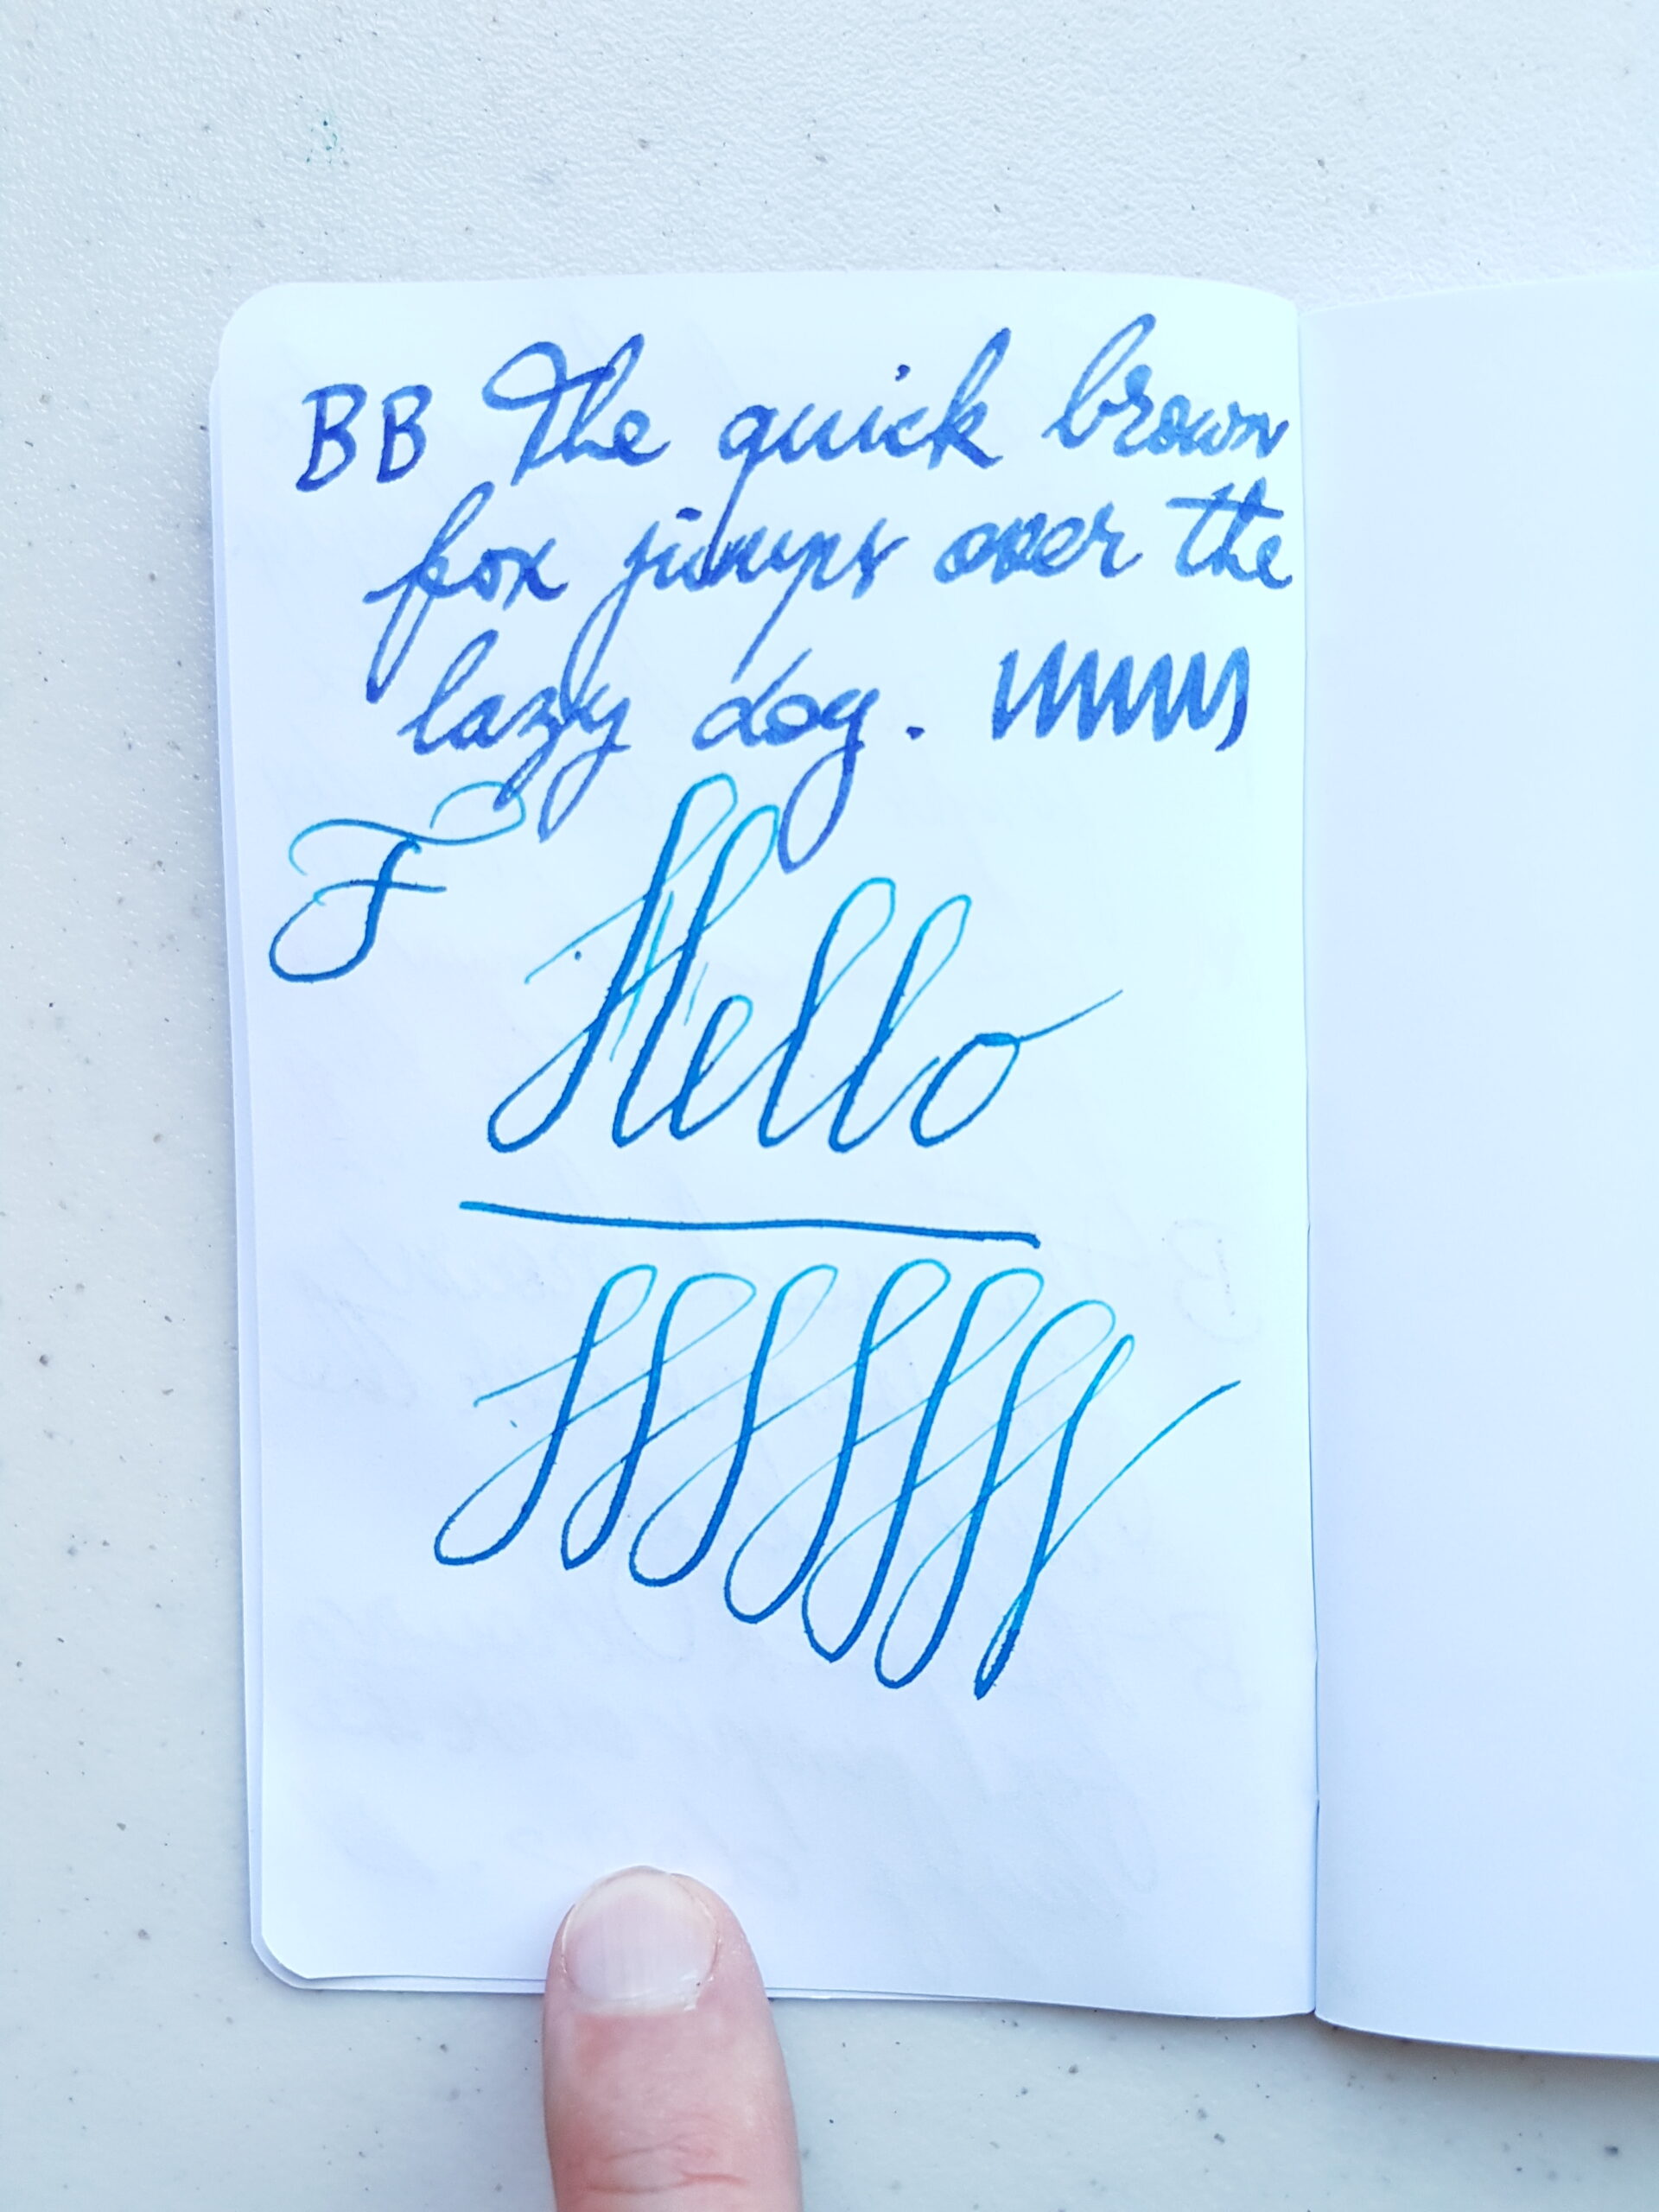 BB The quick brown
fox jumps over the
lazy dog.
F Hello